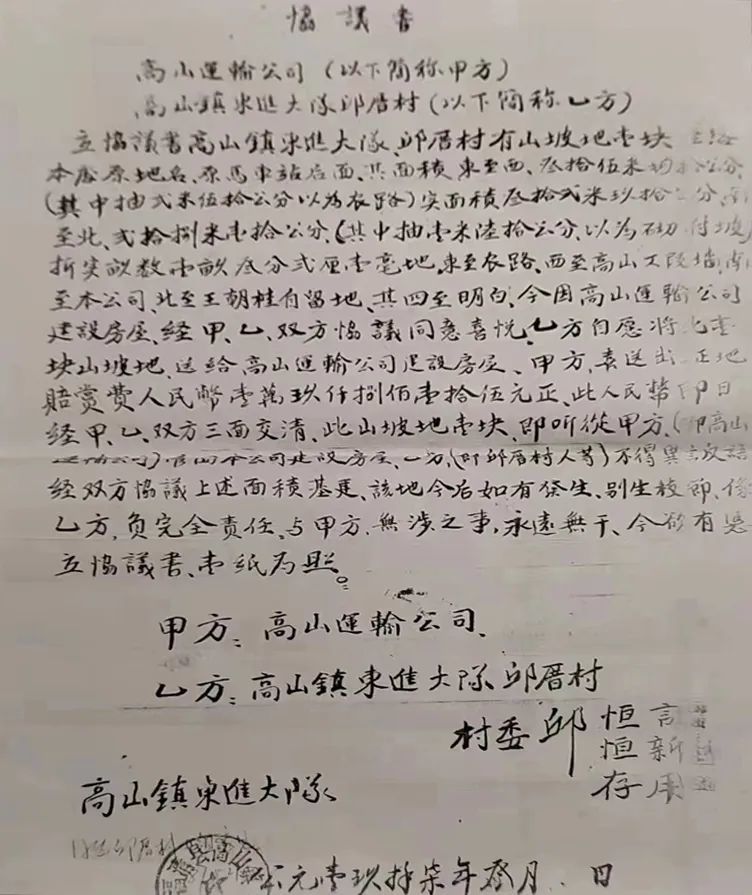 協議書
高山運輸公司（以下简称甲方）
高山鎮東進大隊邱厝村（以下简称乙方）
立協議書高山鎮東進大隊、邱厝村有山坡地壹块
本座原地名、原馬車站后面、其面積東至西、叁拾伍米
（其中抽弍米伍拾公分以為农路）实面積叁拾弍米玖拾公分、南
至北、弍拾捌米壹拾公分、（其中抽壹米陸拾公分、以為砌付坡）
折实畝数壹畝叁分弍厘壹毫地、東至农路、西至高山工段墙、南
至本公司、北至王朝桂自留地、其四至明白、今因高山運輸公司
建設房屋、經甲、乙、双方協議同意喜悦、乙方自愿将此壹
块山坡地、送給高山運輸公司建設房屋、甲方、喜送出 正地
賠赏費人民幣壹萬玖仟捌佰壹拾伍元正、此人民幣即日
经甲、乙、双方三面交清、此山坡地壹块、即听從甲方、（即高山
運輸公司）本公司建設房屋、乙方、（即邱厝村人等）不得異言反語
经双方協議上述面積基建、該地今后如有發生、别生枝節、係
乙方、负完全責任、与甲方、無涉之事，永遠無干、今欲有憑
立協議書、壹纸为照。
甲方：高山運輸公司、
乙方：高山鎮東進大隊邱厝村
村委邱 恒言
恒新
存用
高山鎮東進大隊
邱厝村
高山
公元壹玖捌柒年叁月 日